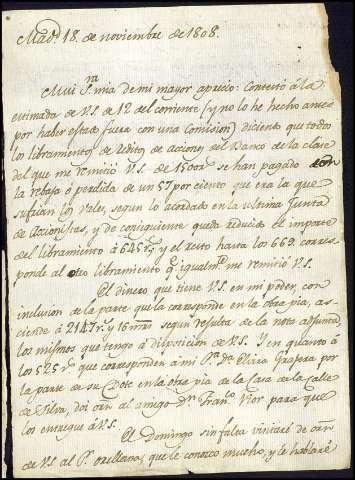 Mad.d 18. de noviembre de 1808.
Mui S.ra mia de mi mayor aprecio: Contextó á la
estimada de V.S. de 12 del corriente (y no lo he hecho antes
por haber estado fuera con una Comision) diciento que todos
los libramientos de redito de acciones del Banco de la clase
del que me remitió V.S. de 1500 r.s se han pagado con
la rebaja ó perdida de un 57 por ciento que era la que
sufrian los Vales, segun lo acordado en la ultima Junta
de Accionistas, y de consiguiente queda reducido el importe
del libramiento á 645 r.s, y el resto hasta los 669. corres-
ponde al otro libramiento q.e igualm.te me remitió V.S.
El dinero que tiene V.S. en mi poder, con
inclusion de la parte que la corresponde en la obra pia, as-
ciende á 2147 r.s y 16 mrs segun resulta de la nota adjunta,
los mismos que tengo á disposicion de V.S. Y en quanto á
los 525 r.s que corresponden á mi S.ra D.a Elvira por
la parte de su Dote en la obra pia de la Casa de la Calle
de Silva, doi orn al amigo D.n Fran.co Vior para que
los entregue á V.S.
El Domingo sin falta visitaré de orn
de V.S. al P. Orellana, que le conozco mucho, y le hablaré